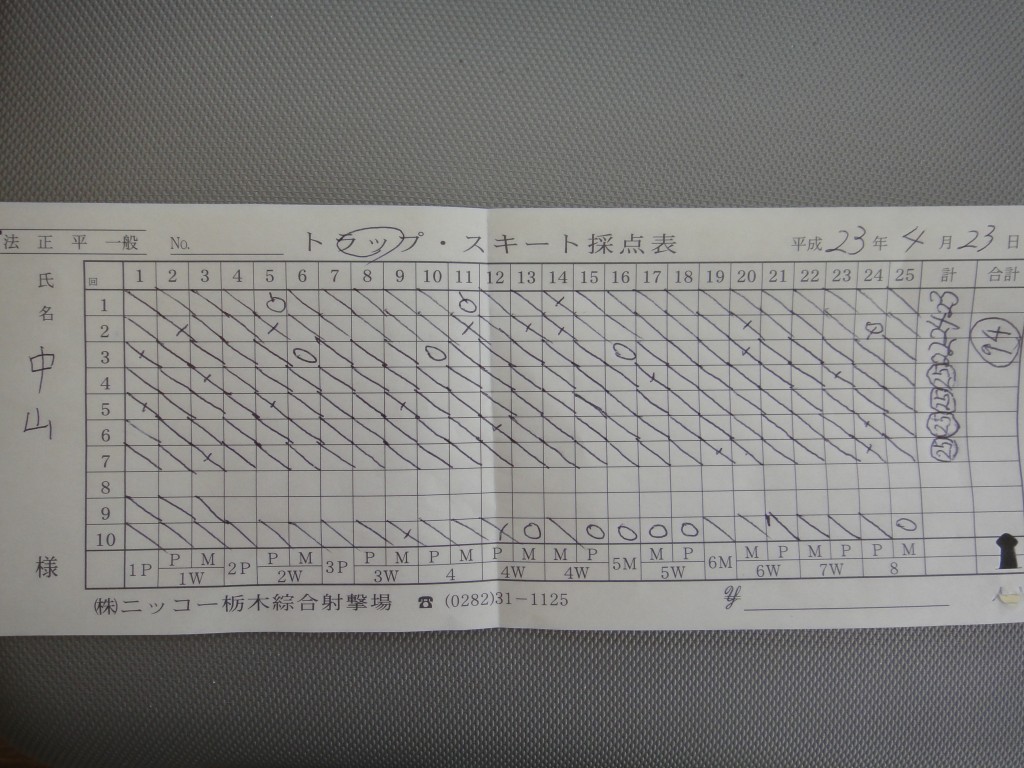 法 正 平 一般 No. トラップ・スキート採点表 平成 23 年 4 月 23 日
氏名 中山 様
回 1 2 3 4 5 6 7 8 9 10 11 12 13 14 15 16 17 18 19 20 21 22 23 24 25 計 合計
1 23
2 24
3 22
4 25
5 25
6 25
7 25
8
9
10
94
P M P M P M P M P M M P M P M P M P P M
1P 1W 2P 2W 3P 3W 4 4W 4W 5M 5W 6M 6W 7W 8
㈱ニッコー栃木綜合射撃場 ☎ (0282)31−1125 ¥